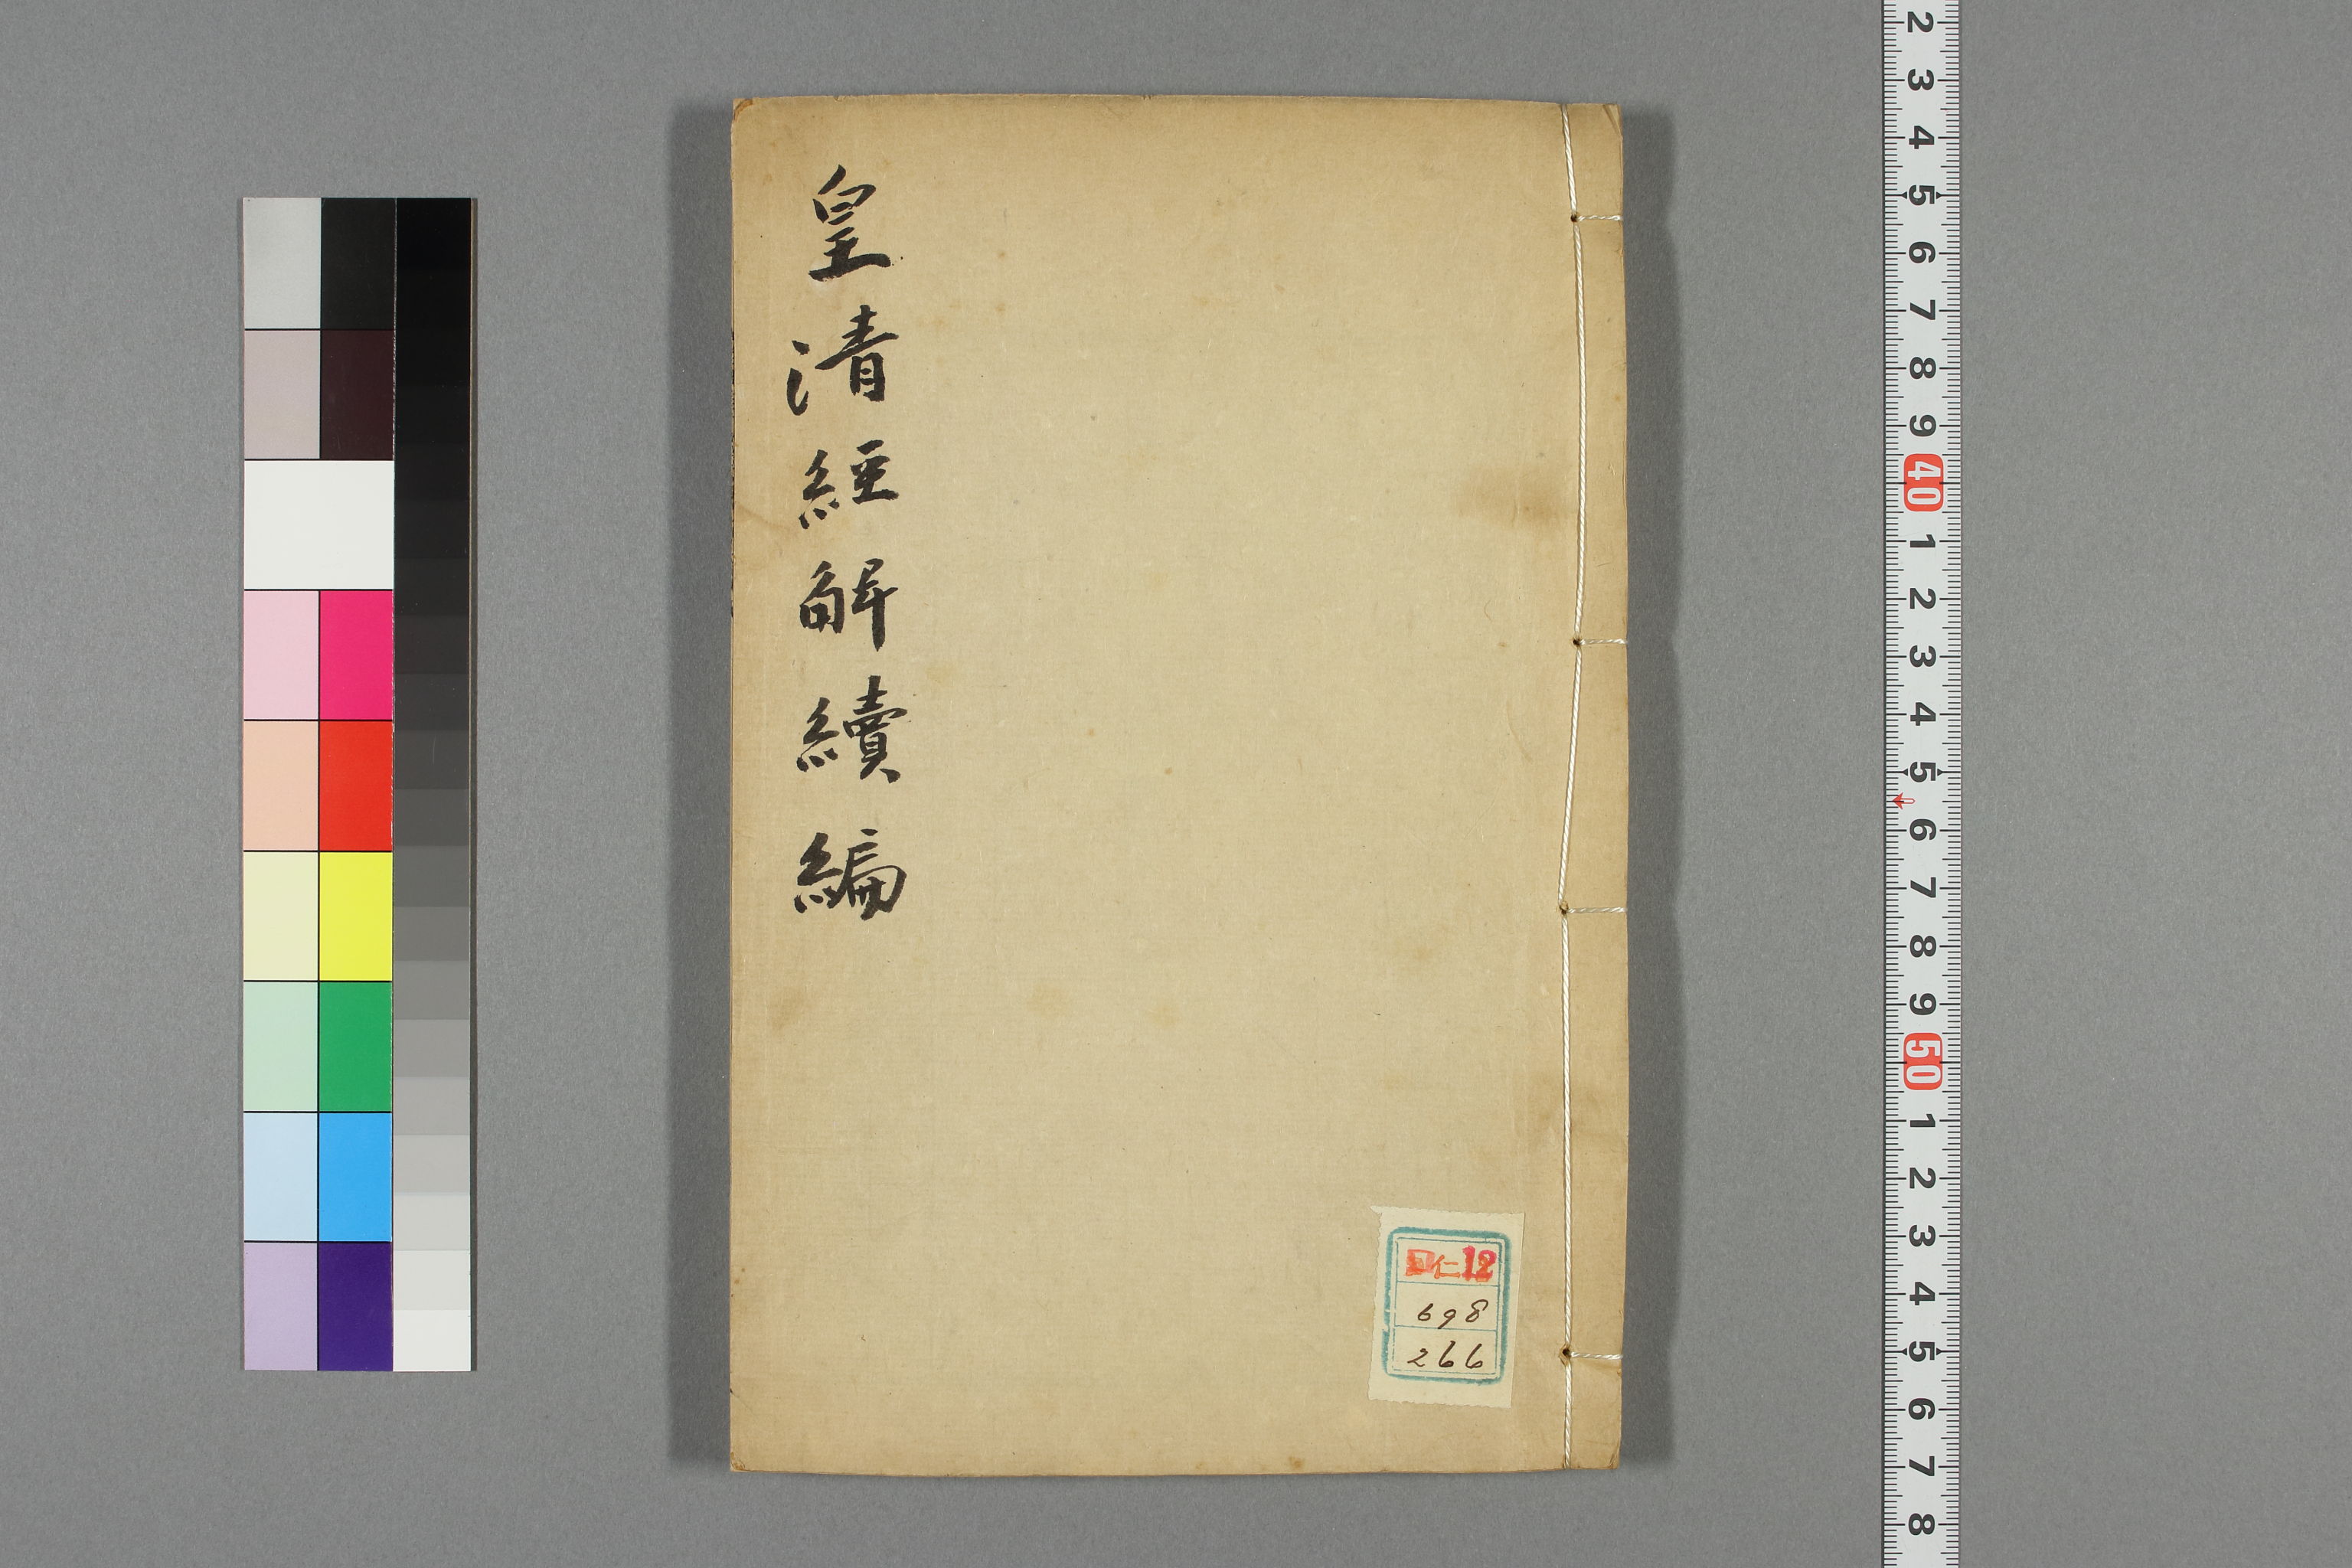 皇清經解續編
仁12
698
266
2
3
4
5
6
7
8
9
40
1
2
3
4
5
6
7
8
9
50
1
2
3
4
5
6
7
8